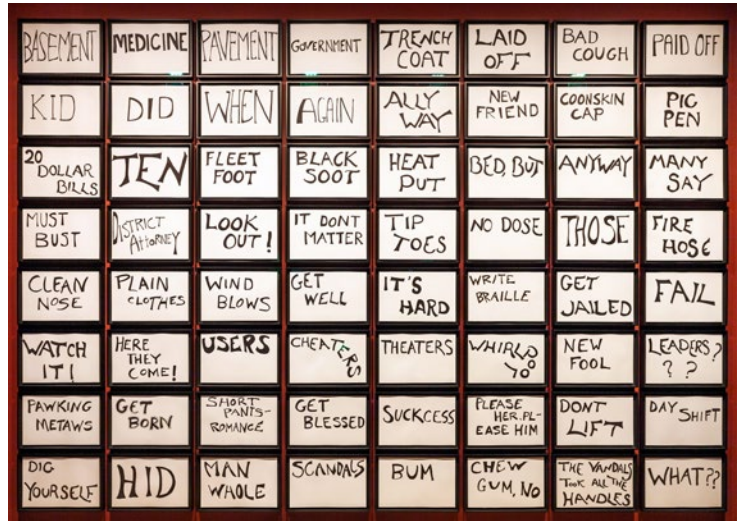 BASEMENT
MEDICINE
PAVEMENT
GOVERNMENT
TRENCH
COAT
LAID
OFF
BAD
COUGH
PAID OFF
KID
DID
WHEN
AGAIN
ALLY
WAY
NEW
FRIEND
COONSKIN
CAP
PIG
PEN
20
DOLLAR
BILLS
TEN
FLEET
FOOT
BLACK
SOOT
HEAT
PUT
BED, BUT
ANYWAY
MANY
SAY
MUST
BUST
DISTRICT
ATTORNEY
LOOK
OUT!
IT DONT
MATTER
TIP
TOES
NO DOSE
THOSE
FIRE
HOSE
CLEAN
NOSE
PLAIN
CLOTHES
WIND
BLOWS
GET
WELL
IT'S
HARD
WRITE
BRAILLE
GET
JAILED
FAIL
WATCH
IT!
HERE
THEY
COME!
USERS
CHEATERS
THEATERS
WHIRLPOOL
NEW
FOOL
LEADERS?
??
PAWKING
METAWS
GET
BORN
SHORT
PANTS-
ROMANCE
GET
BLESSED
SUCKCESS
PLEASE
HER, PL-
EASE HIM
DONT
LIFT
DAY SHIFT
DIG
YOURSELF
HID
MAN
WHOLE
SCANDALS
BUM
CHEW
GUM, NO
THE VANDALS
TOOK ALL THE
HANDLES
WHAT??